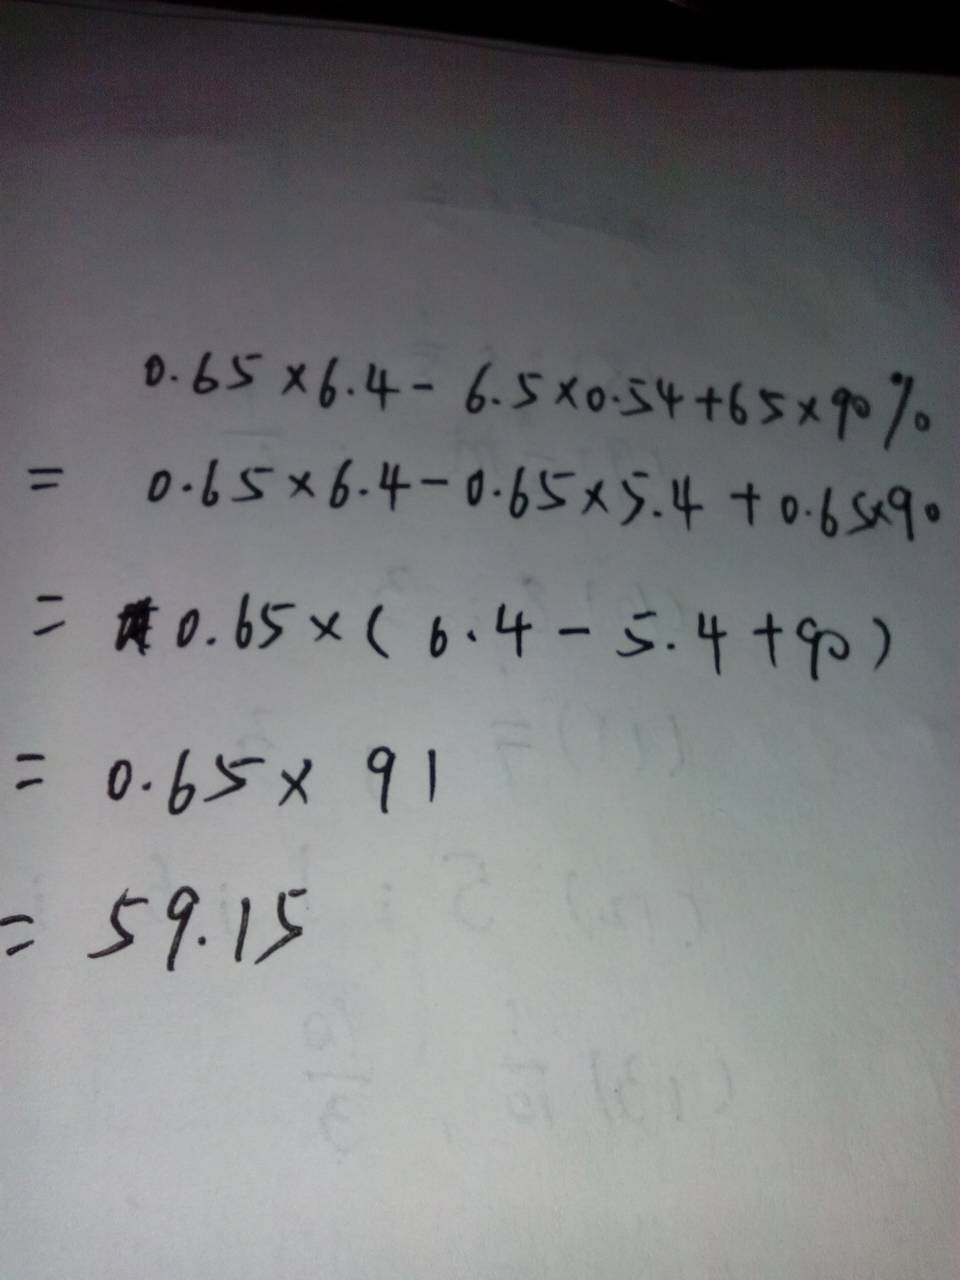 0.65×6.4-6.5×0.54+65×90%
= 0.65×6.4-0.65×5.4+0.65×90
= 0.65×(6.4-5.4+90)
= 0.65×91
= 59.15